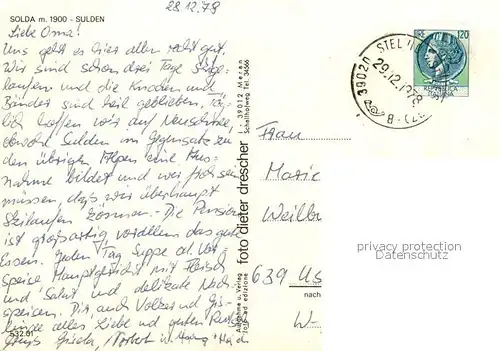 28.12.78
SOLDA m. 1900 - SULDEN
Liebe Oma!
Uns geht es hier allen recht gut.
Wir sind schon drei Tage Ski ge-
laufen und die Knochen und
Bänder sind heil geblieben. Täg-
lich hoffen wir auf Neuschnee,
obwohl Sulden im Gegensatz zu
den übrigen Alpen eine Aus-
nahme bildet und wir froh sein
müssen, daß wir überhaupt
Skilaufen können. Die Pension
ist großartig vor allem das gute
Essen. Jeden Tag Suppe od. Vor-
speise Hauptgericht mit Fleisch
und Salat und delikate Nach-
speisen. Dir, und Volker und
alles Liebe und guten Rutsch
Gisela, Norbert
532.01
Aufnahme u. Verlag
foto ed edizione
foto dieter drescher
I - 39012 Meran
Schallhofweg Tel. 34566
39020
STEL
29.12.1978
120
Frau
Marie
Weilb
639 Us
nach
W
privacy protection
Datenschutz